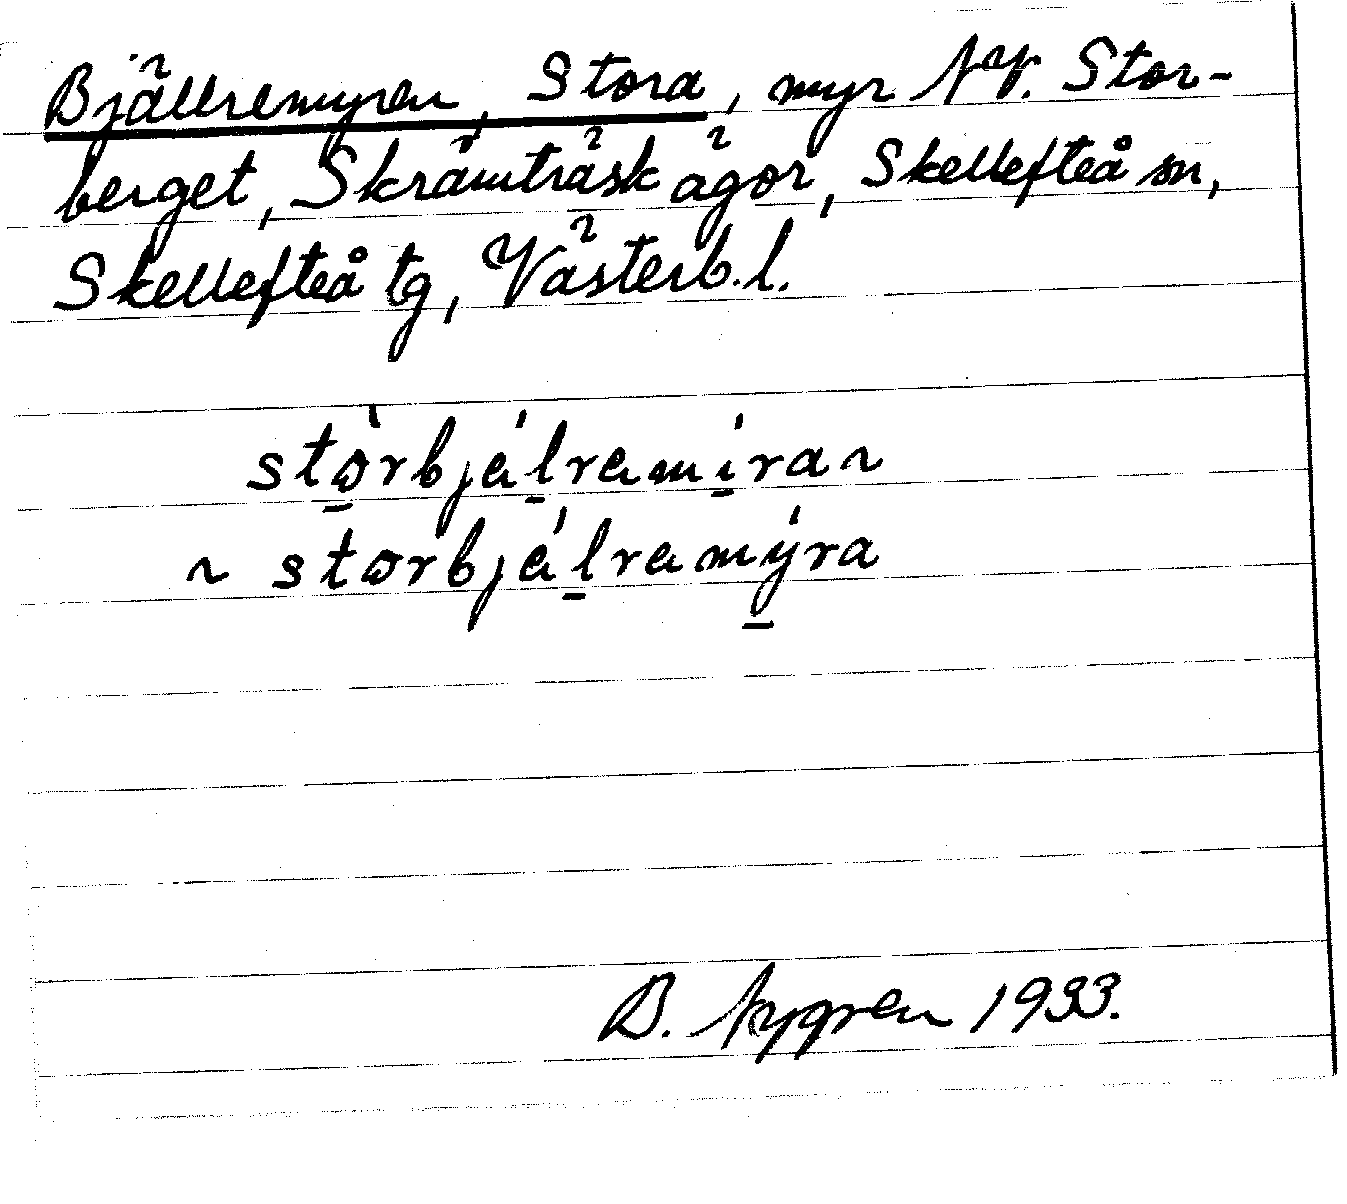 Bjällremyren, Stora, myr NV. Stor-
berget, Skråmträsk ägor, Skellefteå sn,
Skellefteå tg, Västerb. l.
stò̲rbjál̲ramí̲ra ~
~ storbjál̲ramý̲ra
B. Nygren 1933.